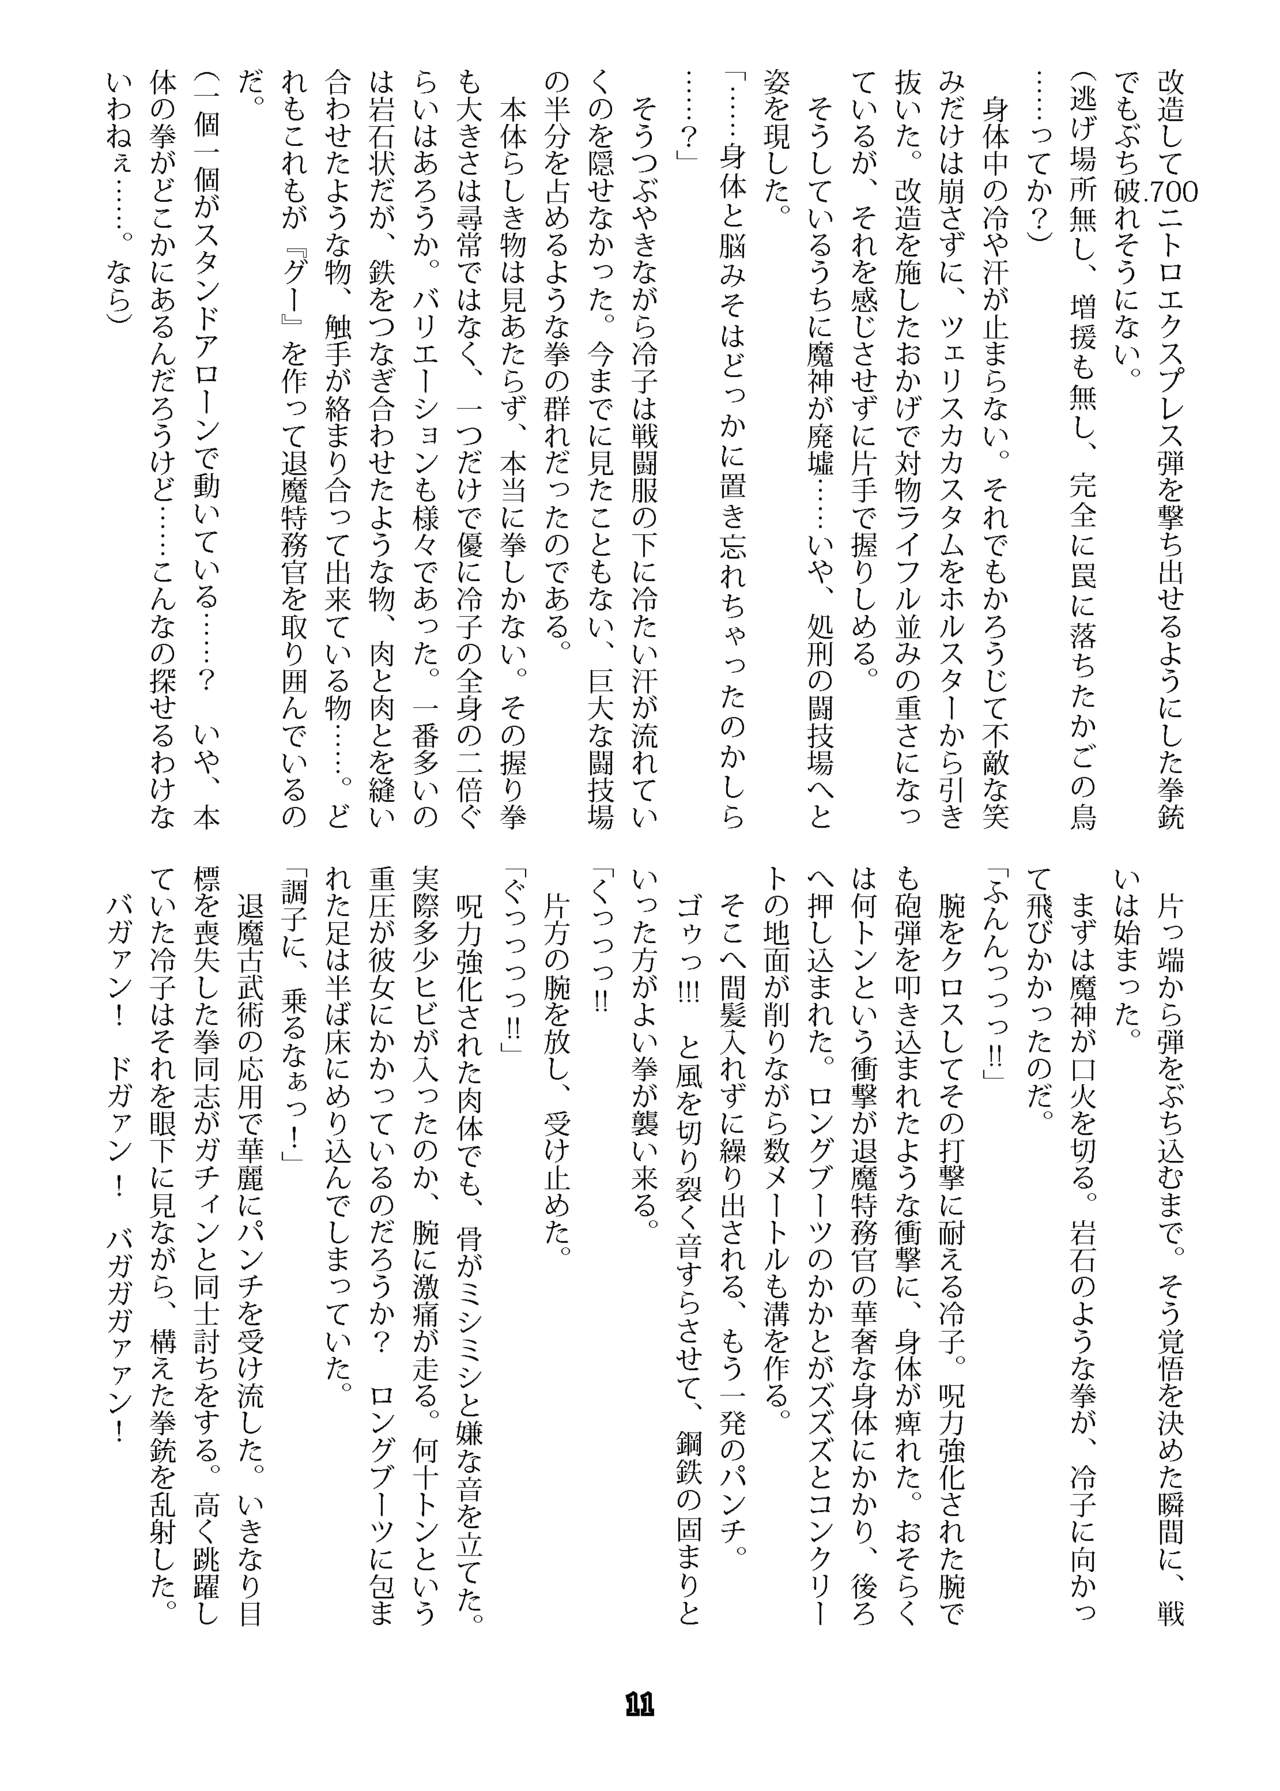 改造して.700ニトロエクスプレス弾を撃ち出せるようにした拳銃
でもぶち破れそうにない。
（逃げ場所無し、増援も無し、完全に罠に落ちたかごの鳥
……ってか？）
　身体中の冷や汗が止まらない。それでもかろうじて不敵な笑
みだけは崩さずに、ツェリスカカスタムをホルスターから引き
抜いた。改造を施したおかげで対物ライフル並みの重さになっ
ているが、それを感じさせずに片手で握りしめる。
　そうしているうちに魔神が廃墟……いや、処刑の闘技場へと
姿を現した。
「……身体と脳みそはどっかに置き忘れちゃったのかしら
……？」
　そうつぶやきながら冷子は戦闘服の下に冷たい汗が流れてい
くのを隠せなかった。今までに見たこともない、巨大な闘技場
の半分を占めるような拳の群れだったのである。
　本体らしき物は見あたらず、本当に拳しかない。その握り拳
も大きさは尋常ではなく、一つだけで優に冷子の全身の二倍ぐ
らいはあろうか。バリエーションも様々であった。一番多いの
は岩石状だが、鉄をつなぎ合わせたような物、肉と肉とを縫い
合わせたような物、触手が絡まり合って出来ている物……。ど
れもこれもが『グー』を作って退魔特務官を取り囲んでいるの
だ。
（一個一個がスタンドアローンで動いている……？　いや、本
体の拳がどこかにあるんだろうけど……こんなの探せるわけな
いわねぇ……。なら）
　片っ端から弾をぶち込むまで。そう覚悟を決めた瞬間に、戦
いは始まった。
　まずは魔神が口火を切る。岩石のような拳が、冷子に向かっ
て飛びかかったのだ。
「ふんんっっっ!!」
　腕をクロスしてその打撃に耐える冷子。呪力強化された腕で
も砲弾を叩き込まれたような衝撃に、身体が痺れた。おそらく
は何トンという衝撃が退魔特務官の華奢な身体にかかり、後ろ
へ押し込まれた。ロングブーツのかかとがズズズとコンクリー
トの地面が削りながら数メートルも溝を作る。
　そこへ間髪入れずに繰り出される、もう一発のパンチ。
　ゴゥっ!!!　と風を切り裂く音すらさせて、鋼鉄の固まりと
いった方がよい拳が襲い来る。
「くっっっ!!
　片方の腕を放し、受け止めた。
「ぐっっっっ!!」
　呪力強化された肉体でも、骨がミシミシと嫌な音を立てた。
実際多少ヒビが入ったのか、腕に激痛が走る。何十トンという
重圧が彼女にかかっているのだろうか？　ロングブーツに包ま
れた足は半ば床にめり込んでしまっていた。
「調子に、乗るなぁっ！」
　退魔古武術の応用で華麗にパンチを受け流した。いきなり目
標を喪失した拳同志がガチィンと同士討ちをする。高く跳躍し
ていた冷子はそれを眼下に見ながら、構えた拳銃を乱射した。
　バガァン！　ドガァン！　バガガガァァン！
11